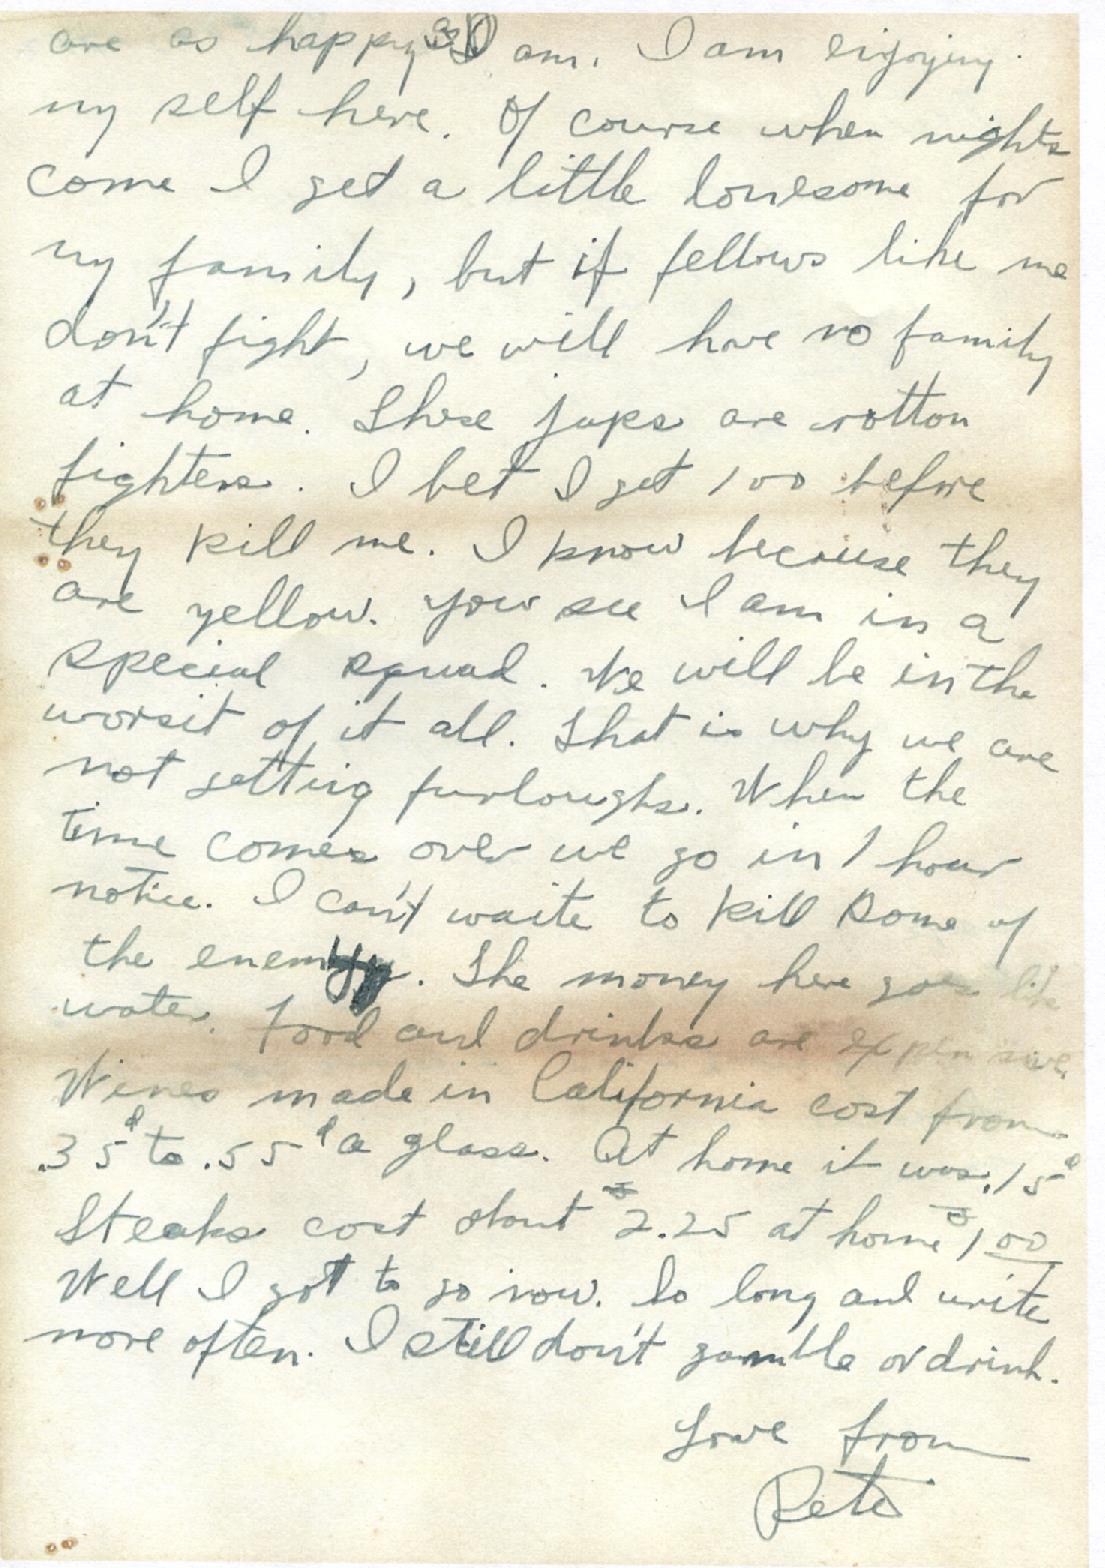 are as happy as I am. I am enjoying
my self here. Of course when nights
come I get a little lonesome for
my family, but if fellows like me
don't fight, we will have no family
at home. These japs are rotton
fighters. I bet I get 100 before
they kill me. I know because they
are yellow. You see I am in a
special squad. We will be in the
worsit of it all. That is why we are
not getting furloughs. When the
time comes over we go in 1 hour
notice. I can't waite to kill some of
the enemy. The money here goes like
water. Food and drinks are expensive
Wines made in California cost from
.35¢ to .55¢ a glass. At home it was .15¢
Steaks cost about $2.25 at home $1.00
Well I got to go now. So long and write
more often. I still don't gamble or drink.
Love from
Pete